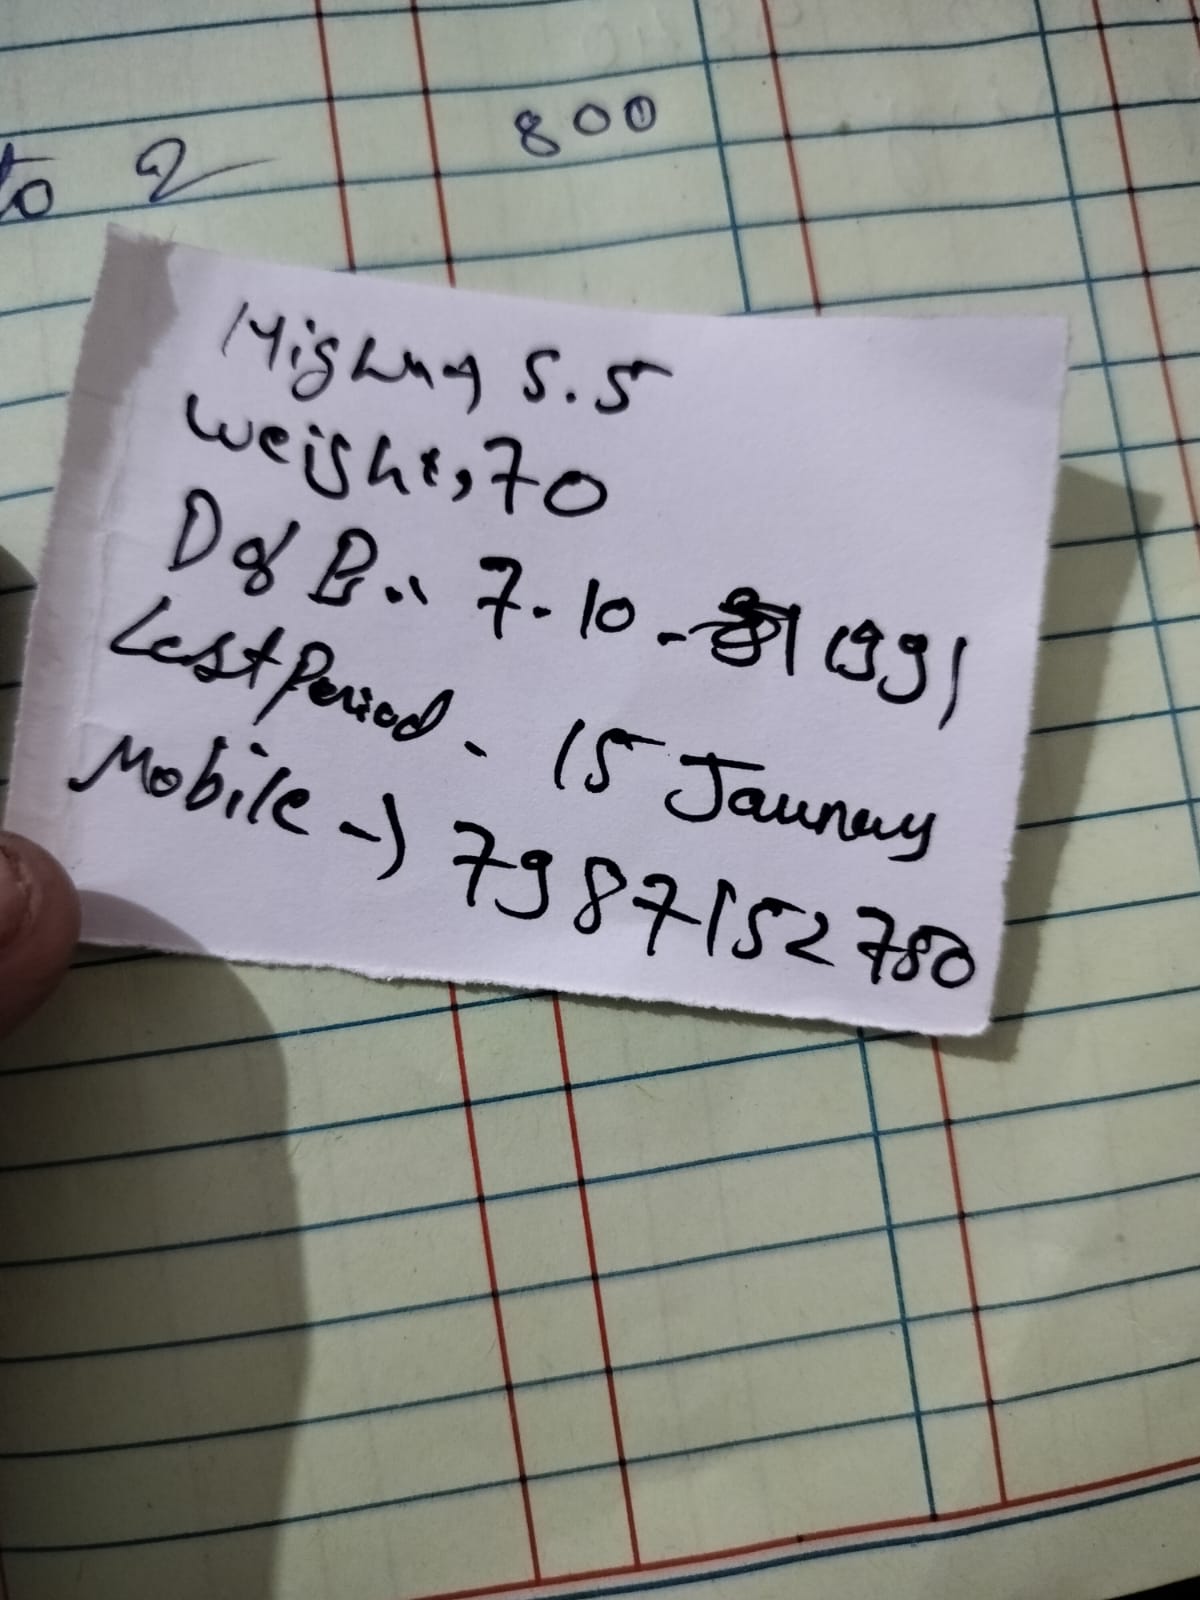 to 2 800
Highny 5.5
weight, 70
D of B.. 7-10- 1991
Last Period - 15 Jaunay
Mobile -> 7987152780